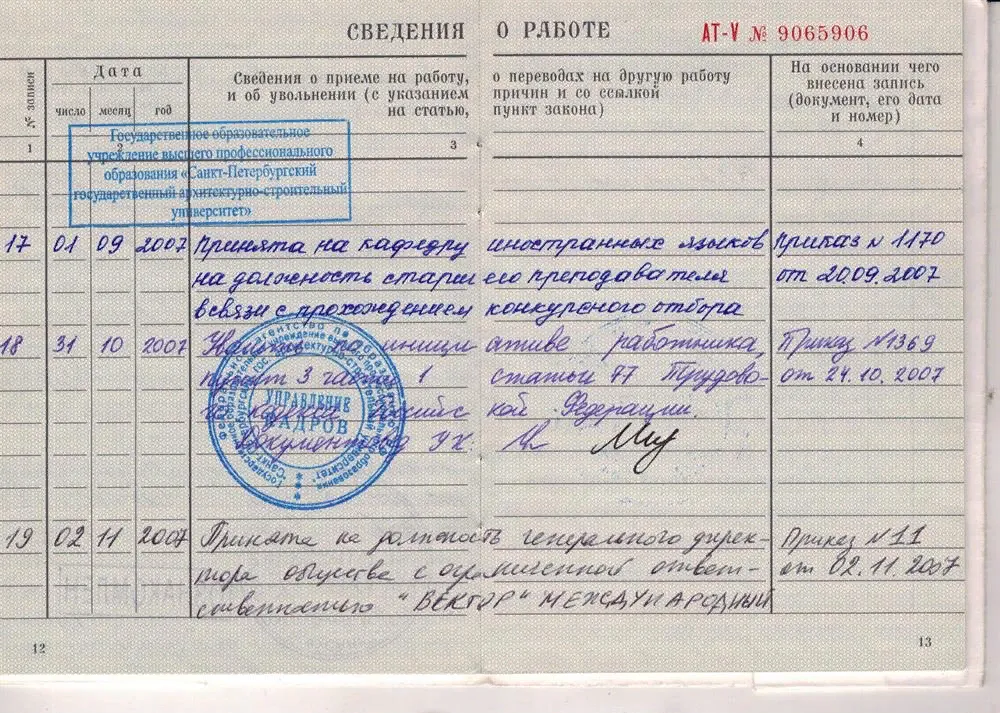 СВЕДЕНИЯ О РАБОТЕ АТ-V № 9065906
№ записи
Дата
число месяц год
Сведения о приеме на работу, о переводах на другую работу
и об увольнении (с указанием причин и со ссылкой
на статью, пункт закона)
На основании чего
внесена запись
(документ, его дата
и номер)
1 2 3 4
Государственное образовательное
учреждение высшего профессионального
образования «Санкт-Петербургский
государственный архитектурно-строительный
университет»
17 01 09 2007 Принята на кафедру иностранных языков Приказ N 1170
на должность старшего преподавателя от 20.09.2007
в связи с прохождением конкурсного отбора
18 31 10 2007 по инициативе работника, Приказ N1369
пункт 3 части 1 статьи 77 Трудово- от 24.10.2007
го кодекса Российской Федерации.
УПРАВЛЕНИЕ
КАДРОВ
Документовед УК.
19 02 11 2007 Принята на должность генерального дирек- Приказ N11
тора общества с ограниченной ответ- от 02.11.2007
ственностью "ВЕКТОР" МЕЖДУНАРОДНЫЙ
12 13